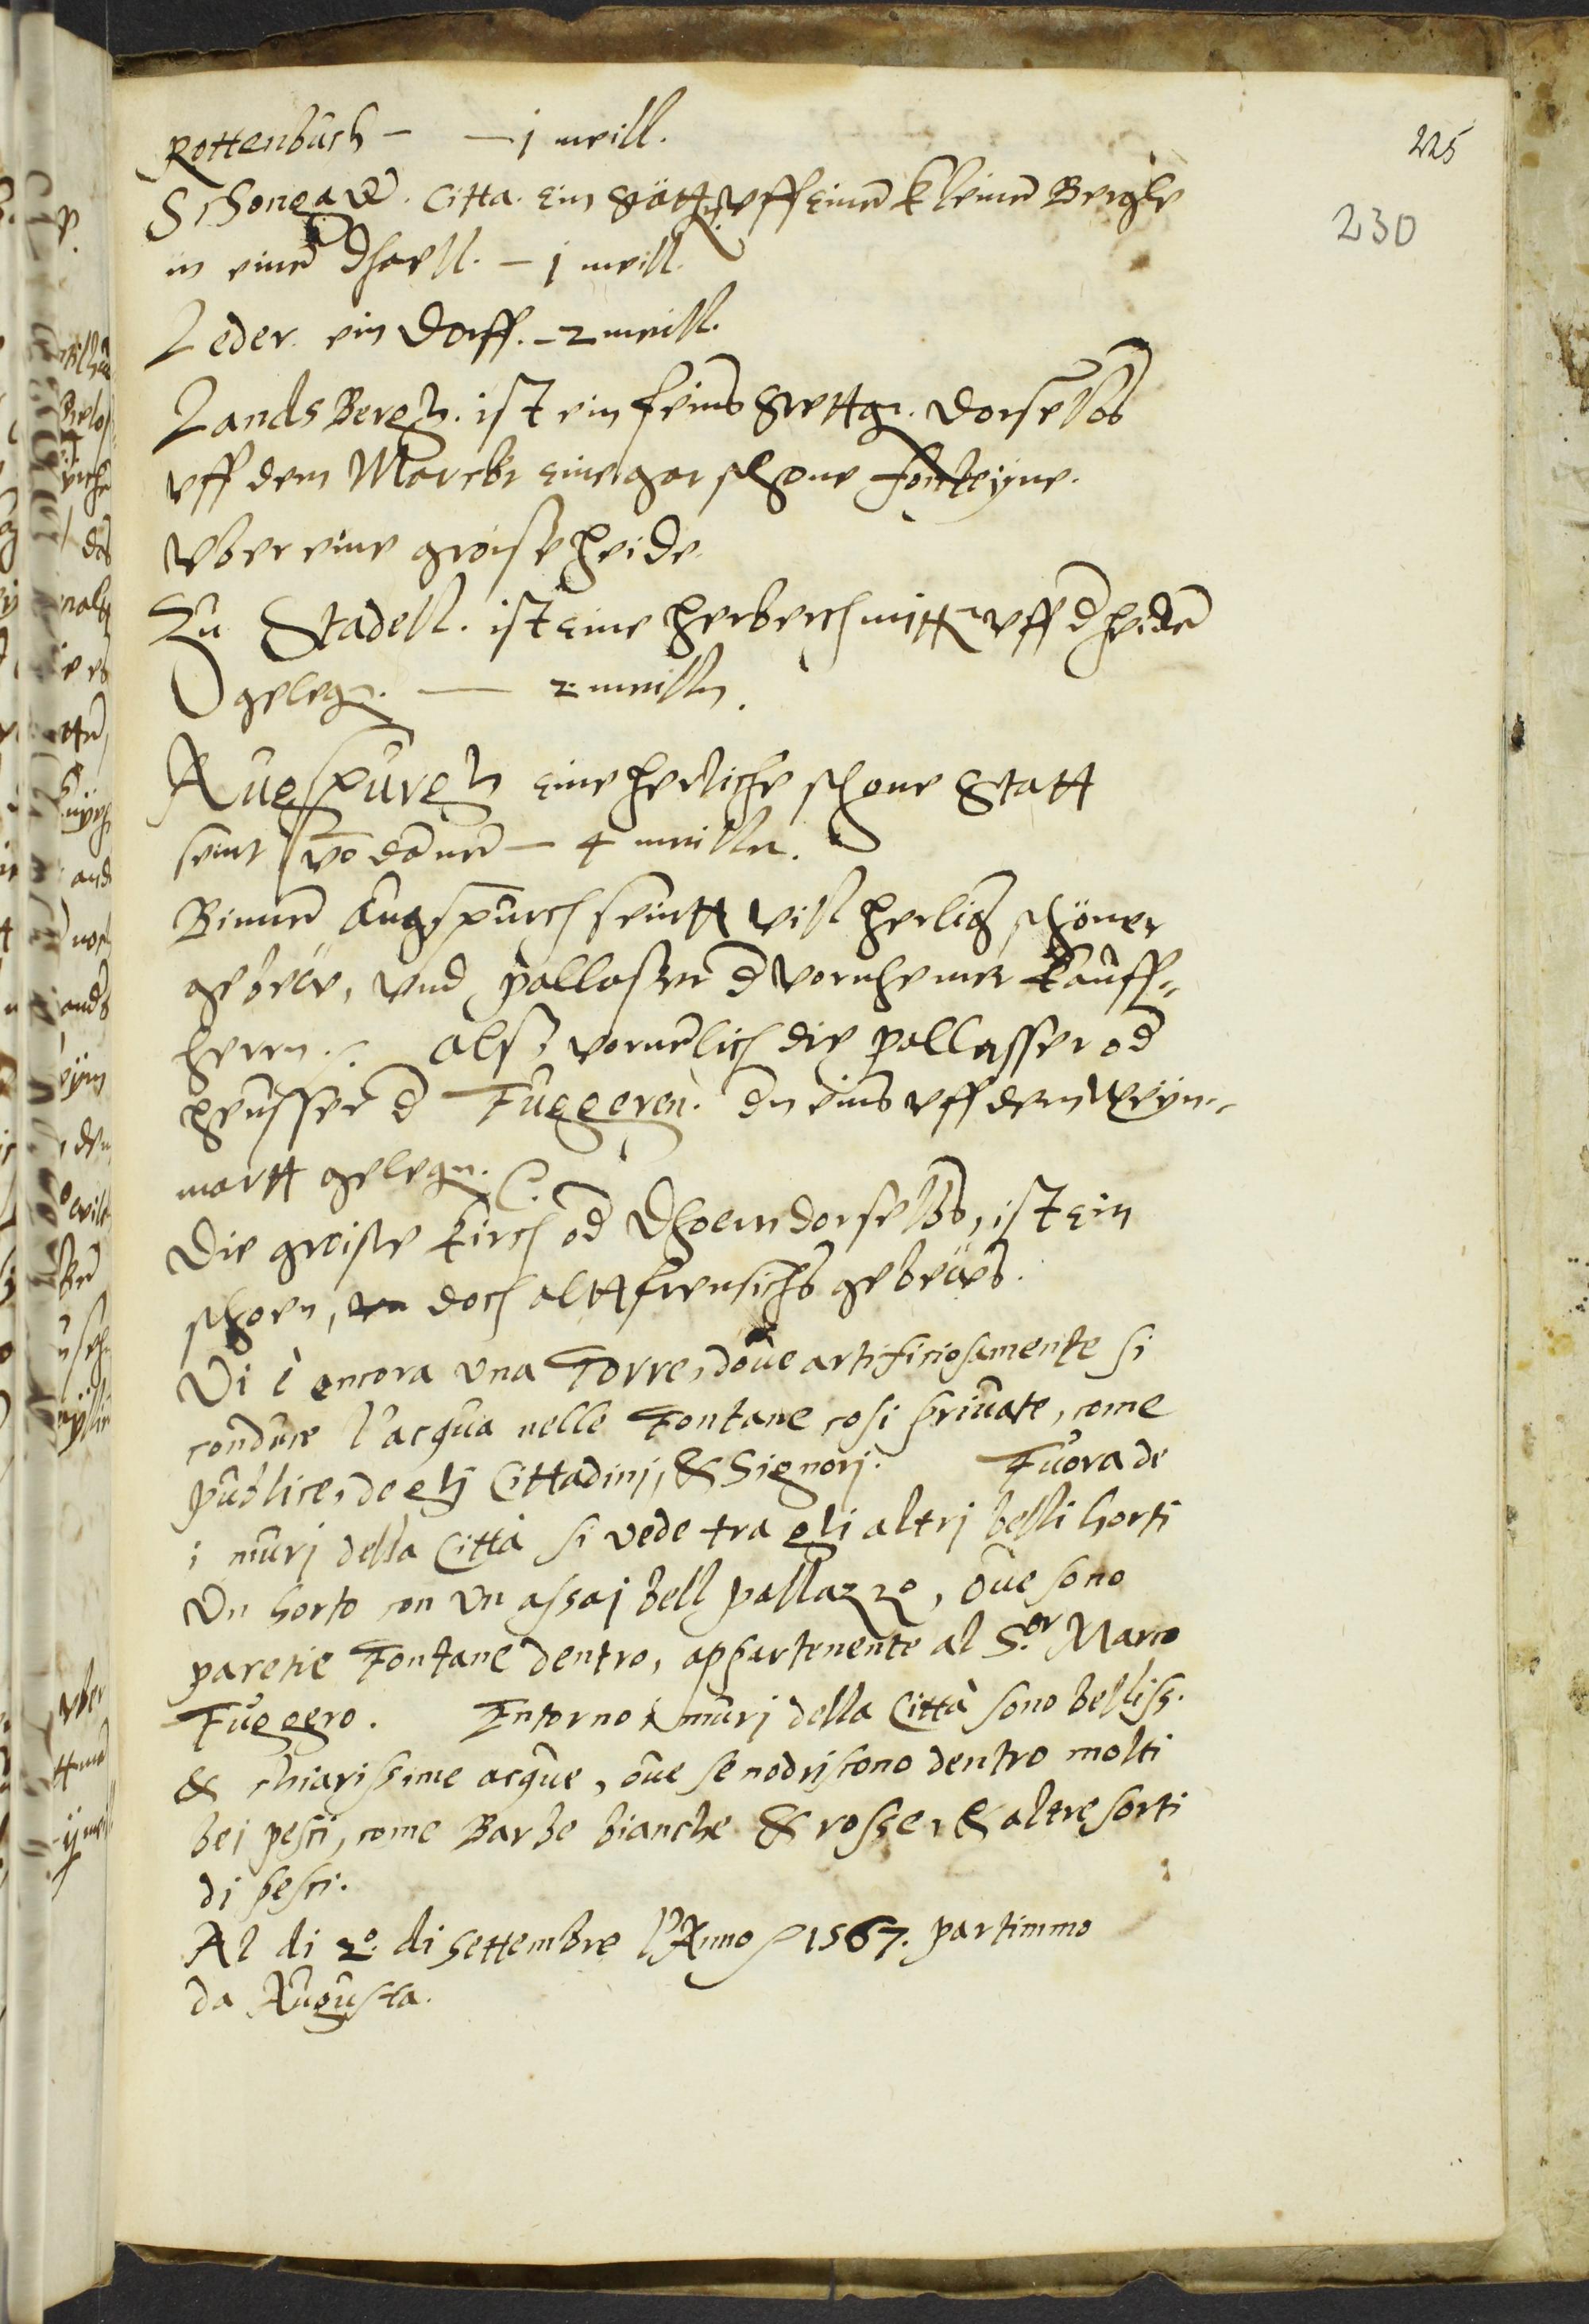 225
230
Rottenbuch – – 1 meill.
Schongaw. Citta. Ein Stättg. uff einem kleinen Bergle
in einem Dhaell. – 1 meill.
Leder. ein Dorff. – 2 meill.
Landsbergh. ist ein feins Stettgn. dorselbs
uff dem Marckt eine gar schone fonteyne.
uber eine groisse heide.
Zu Stadell. ist eine herberch mitten uff der heiden
gelegn. — 2 meilln.
Augspurgh eine herliche schone Statt
seint von dannen – 4 meillen.
Binnen Augspurch seintt vill herlich schöner
gebew, und pallasser der vornhemer kauff=
herrn. alss vornemlich die pallasser oder
heusser der Fuggeren. dern eins uff dem Weyn=
martt gelegn.
Die groisse kirch oder Dhoem dorselbs, ist ein
schoen, doch altt frensichs gebews.
Vi è ancora una Torre, doue artificiosamente si
conduce l'acqua nelle Fontane cosi priuate, come
publice, de glj Cittadinj, & Signorj. Fuora de
i murj della Città si vede tra gli altrj belli horti
Un horto con un assaj bell pallazzo, oue sono
parechie Fontane dentro, appartenente al S.or Marco
Fuggero. Intorno i murj della Città sono belliss.
& chiarissime acque, oue se nodriscono dentro molti
bei pesci, come Barbe bianche & rosse, & altre sorti
dj pesci.
Al di 2.o di Settembre l'Anno 1567. partimmo
da Augusta.